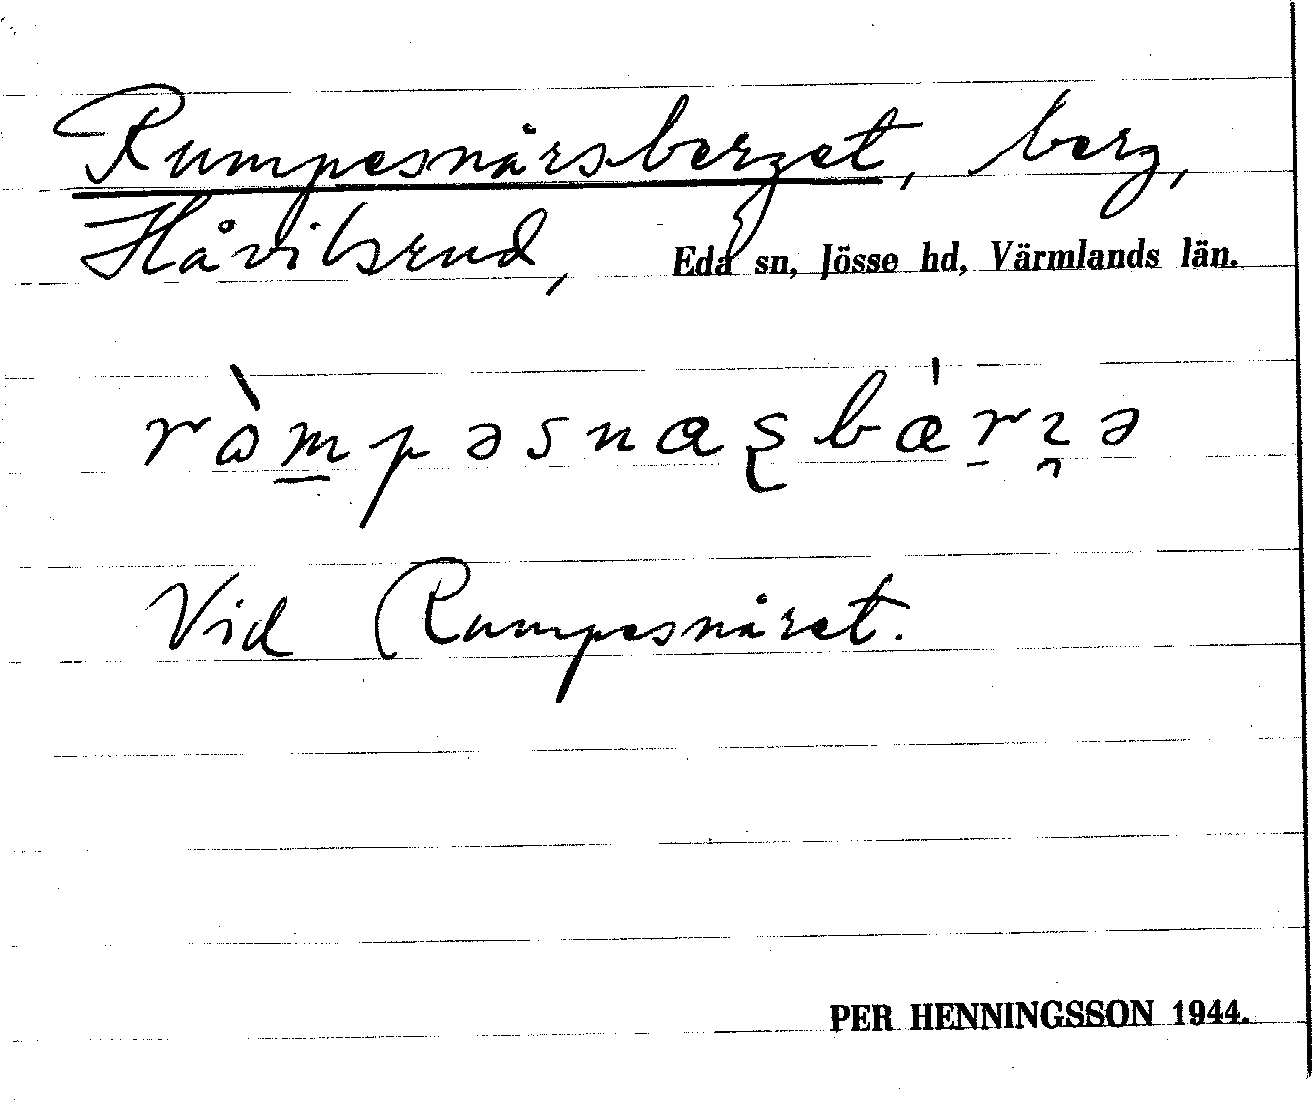 Rumpesnårsberget, berg,
Håvilsrud, Eda sn, Jösse hd, Värmlands län.
Vid Rumpesnåret.
PER HENNINGSSON 1944.